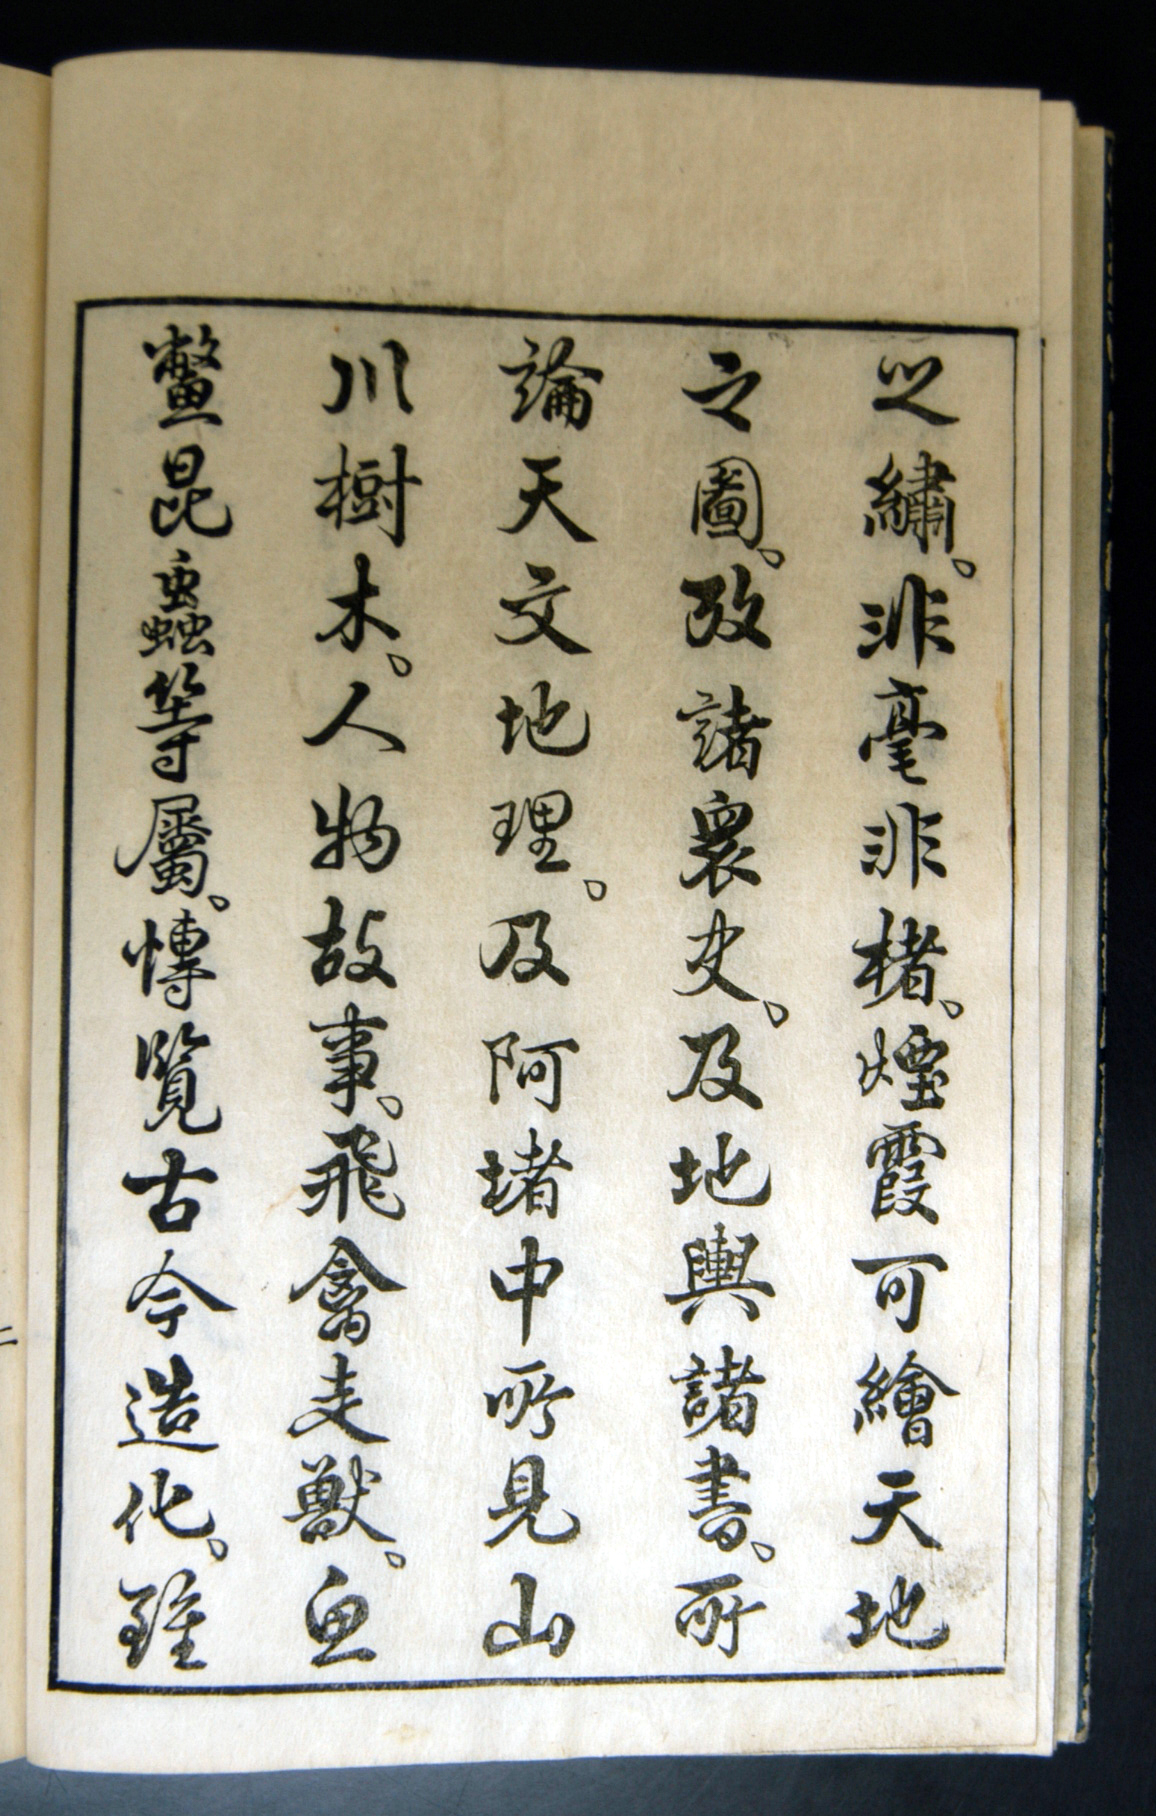 之繡。非毫非楮。煙霞可繪天地
之圖。攷諸眾史。及地輿諸書。所
論天文地理。及阿堵中所見山
川樹木。人物故事。飛禽走獸。魚
鱉昆蟲等屬。博覽古今造化。雖
二